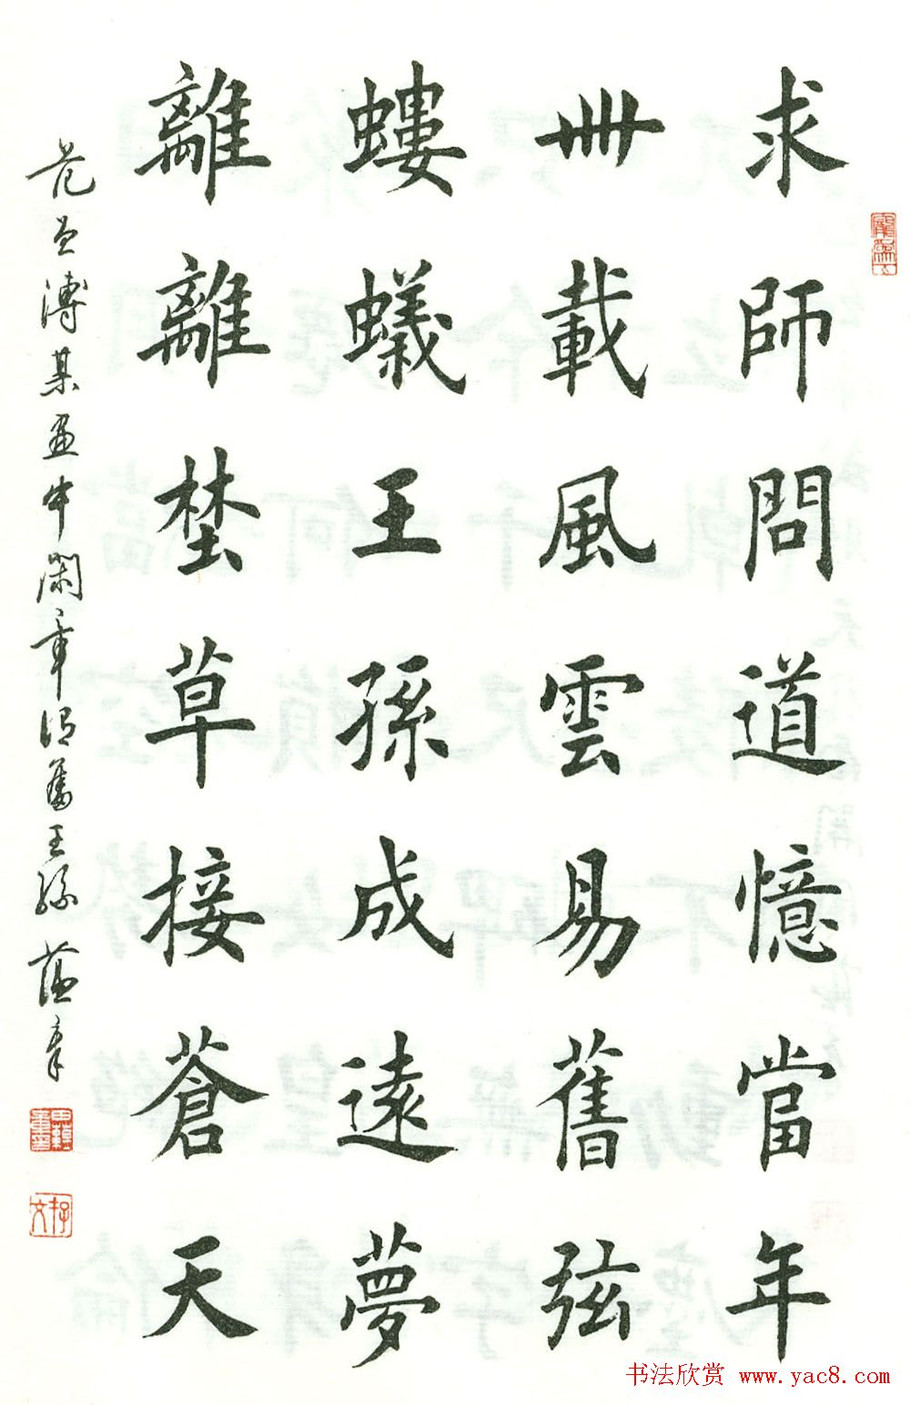 求師問道憶當年
卌載風雲易舊弦
螻蟻王孫成遠夢
離離埜草接蒼天
畫中閑章 舊王孫
书法欣赏 www.yac8.com